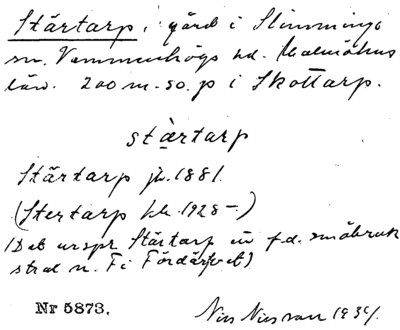 Stärtarp, gård i Slimminge
sn. Vemmenhögs hd. Malmöhus
län. 200 m. so. p i Skottarp.
stärtarp
Stärtarp jb. 1881.
(Stertarp kb. 1928-)
(Det urspr Stärtarp är f.d. småbruk
strax n. Fi Fördärvet)
Nr 5873.
Nils Nilsson 1934.